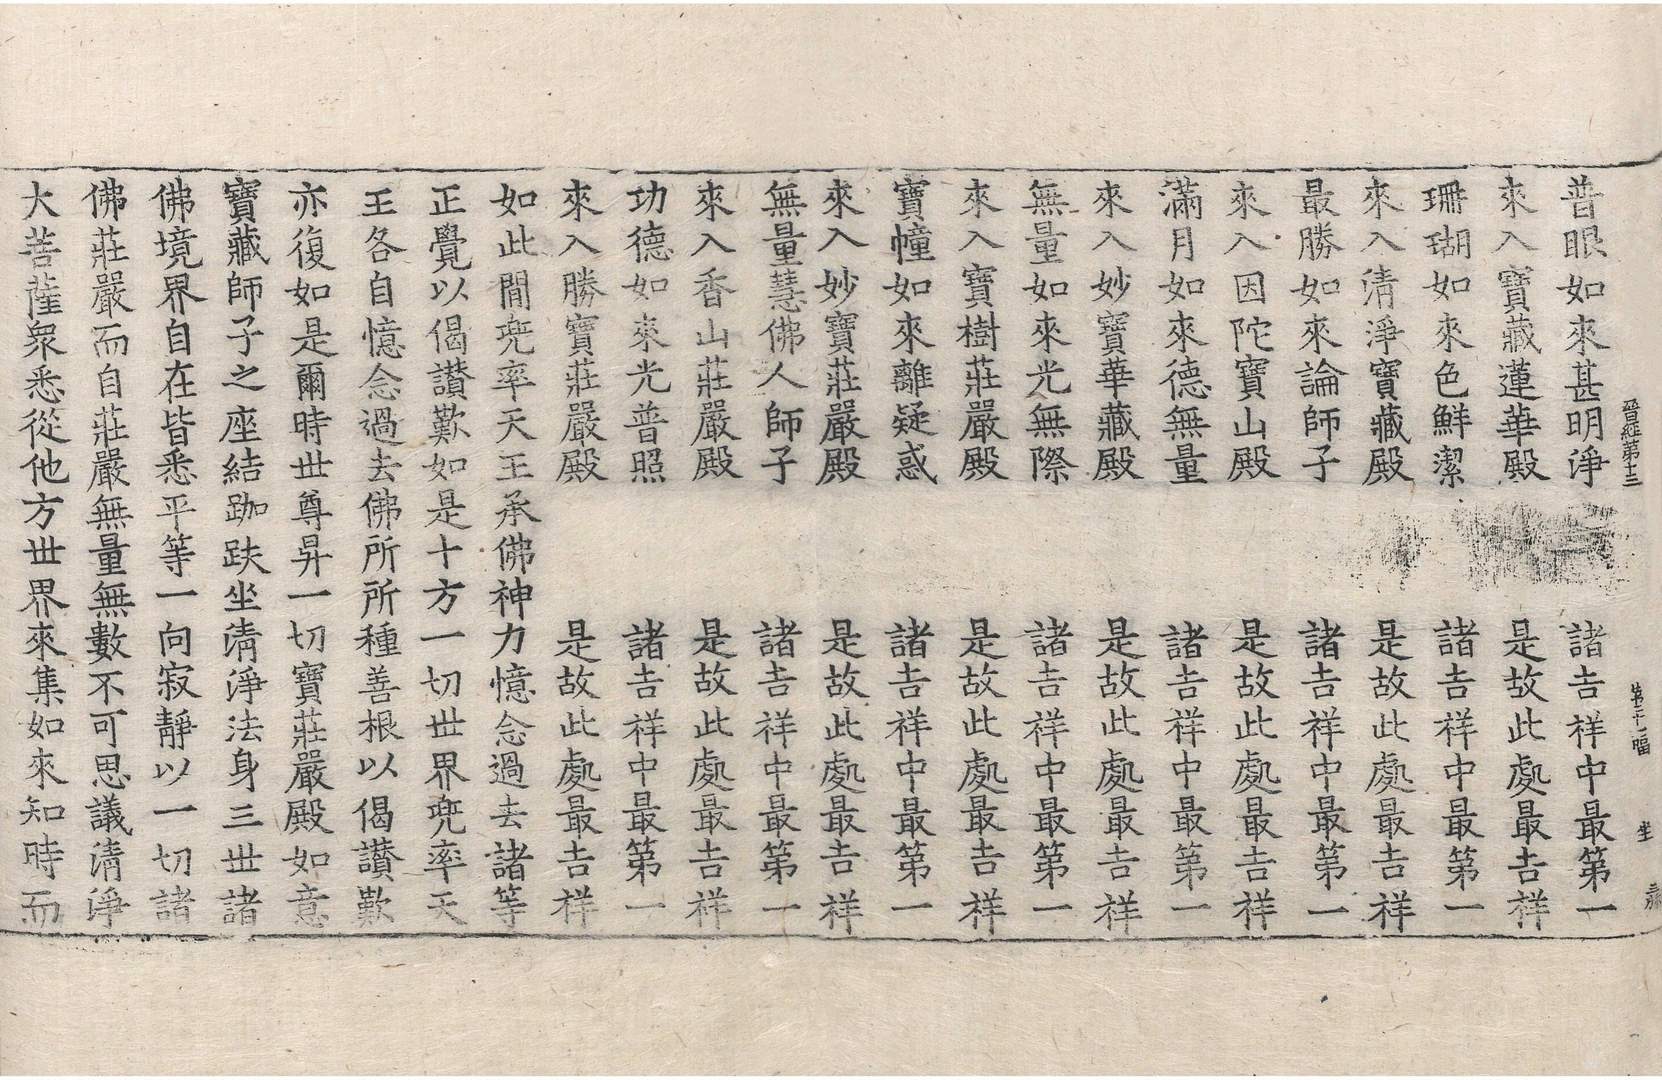 晉經第十三　第二十一幅　坐
普眼如來甚明淨　諸吉祥中最第一
來入寶藏蓮華殿　是故此處最吉祥
珊瑚如來色鮮潔　諸吉祥中最第一
來入清淨寶藏殿　是故此處最吉祥
最勝如來論師子　諸吉祥中最第一
來入因陀寶山殿　是故此處最吉祥
滿月如來德無量　諸吉祥中最第一
來入妙寶華藏殿　是故此處最吉祥
無量如來光無際　諸吉祥中最第一
來入寶樹莊嚴殿　是故此處最吉祥
寶幢如來離疑惑　諸吉祥中最第一
來入妙寶莊嚴殿　是故此處最吉祥
無量慧佛人師子　諸吉祥中最第一
來入香山莊嚴殿　是故此處最吉祥
功德如來光普照　諸吉祥中最第一
來入勝寶莊嚴殿　是故此處最吉祥
如此間兜率天王承佛神力憶念過去諸等
正覺以偈讃歎如是十方一切世界兜率天
王各自憶念過去佛所所種善根以偈讃歎
亦復如是爾時世尊昇一切寶莊嚴殿如意
寶藏師子之座結跏趺坐清淨法身三世諸
佛境界自在皆悉平等一向寂靜以一切諸
佛莊嚴而自莊嚴無量無數不可思議清淨
大菩薩衆悉從他方世界來集如來知時而